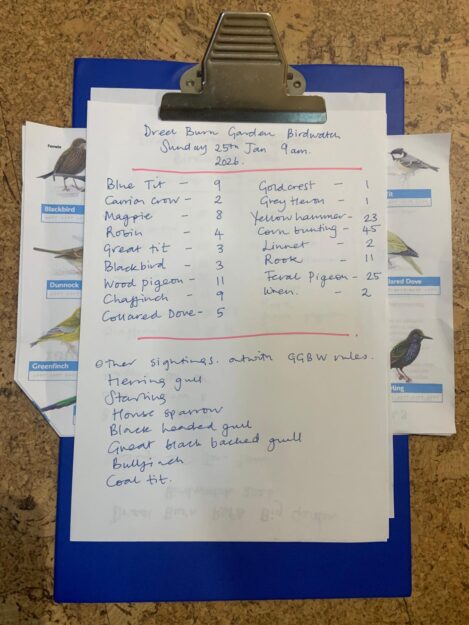 Dreel Burn Garden Birdwatch
Sunday 25th Jan 9am.
2026.
Blue Tit - 9
Carrion crow - 2
Magpie - 8
Robin - 4
Great tit - 3
Blackbird - 3
Wood pigeon - 11
Chaffinch - 9
Collared Dove - 5
Goldcrest - 1
Grey Heron - 1
Yellowhammer - 23
Corn bunting - 45
Linnet - 2
Rook - 11
Feral Pigeon - 25
Wren. - 2
Other sightings. outwith GGBW rules.
Herring gull
Starling
House sparrow
Black headed gull
Great black backed gull
Bullfinch
Coal tit.
Female
Blackbird
Dunnock
Greenfinch